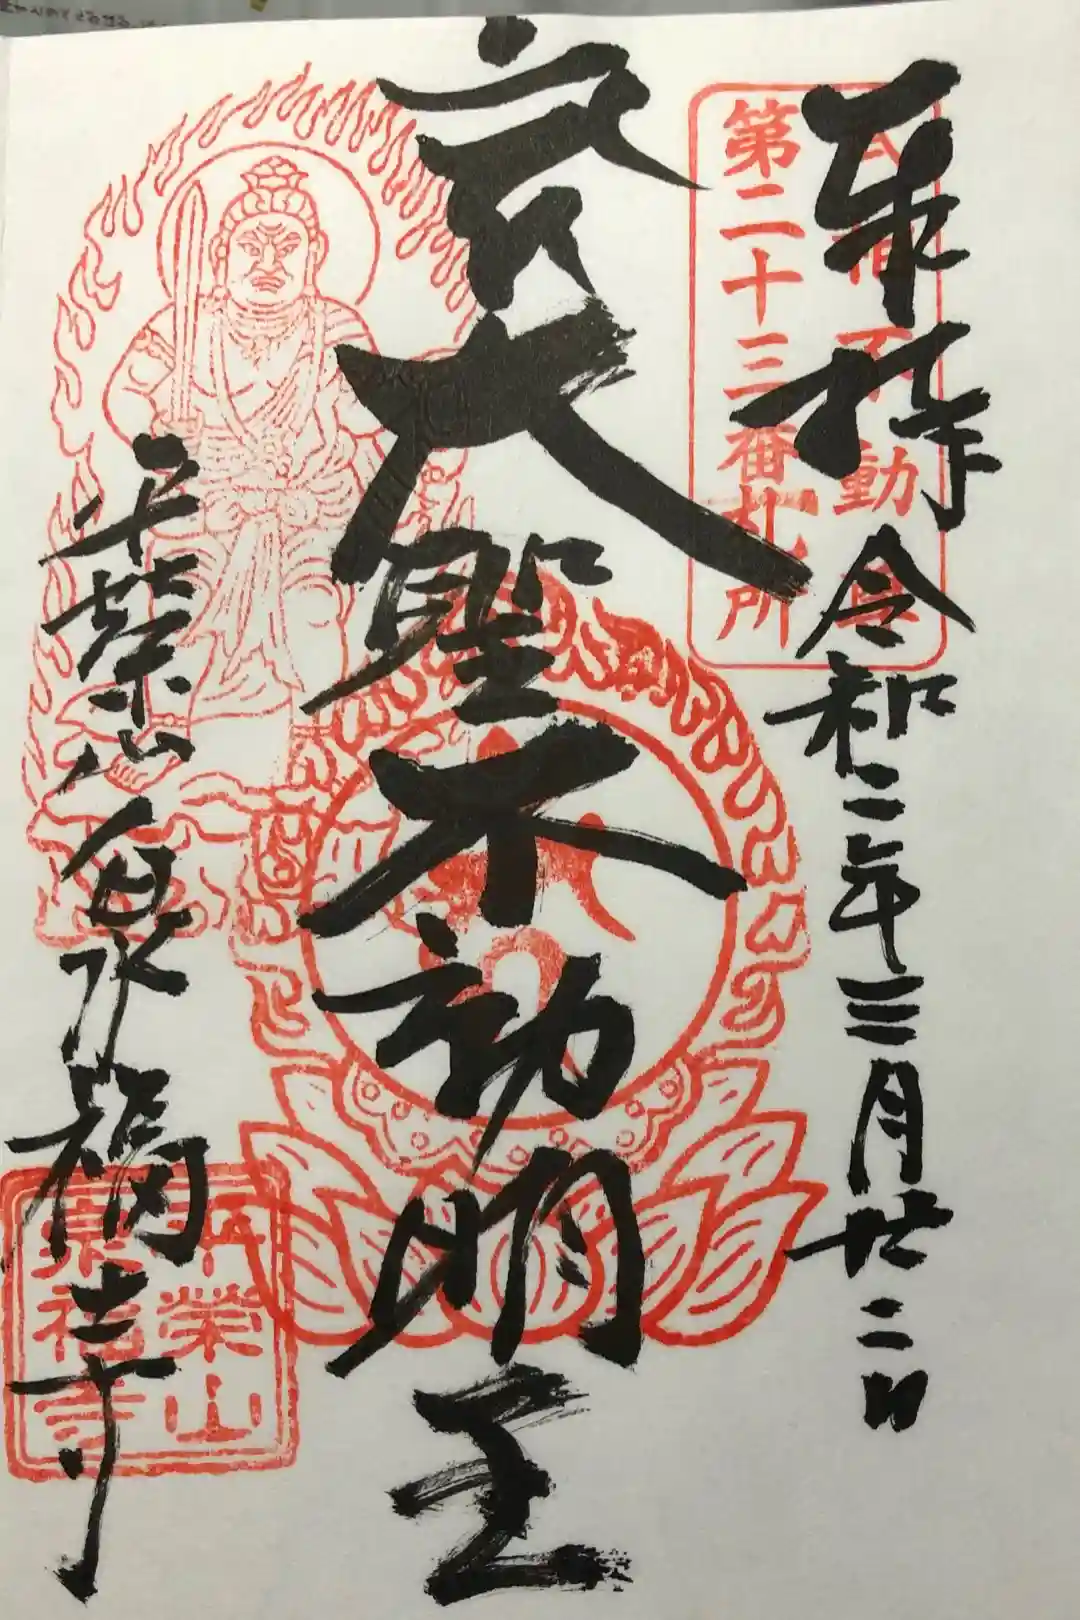 奉拝 令和二年三月廿二日
不動
第二十三番札所
大聖不動明王
平栄山 泉福寺
平榮山
泉福寺